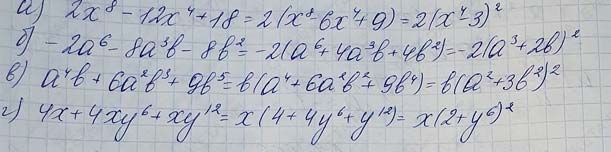 а) 2x⁸ - 12x⁴ + 18 = 2(x⁸ - 6x⁴ + 9) = 2(x⁴ - 3)²
б) - 2a⁶ - 8a³b - 8b² = -2(a⁶ + 4a³b + 4b²) = -2(a³ + 2b)²
в) a⁴b + 6a²b³ + 9b⁵ = b(a⁴ + 6a²b² + 9b⁴) = b(a² + 3b²)²
г) 4x + 4xy⁶ + xy¹² = x(4 + 4y⁶ + y¹²) = x(2 + y⁶)²